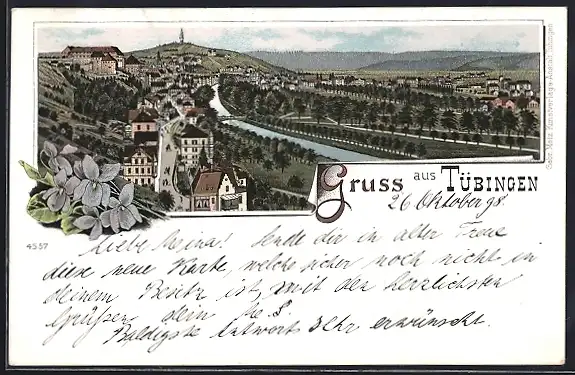 Gruss aus TÜBINGEN
26 Oktober 98.
Gebr. Metz Kunstverlags-Anstalt Tübingen
4557
Liebe Meina! Sende dir in alter Treue
diese neue Karte, welche sicher noch nicht in
deinem Besitz ist, mit den herzlichsten
Grüßen dein
Baldigste Antwort sehr erwünscht.